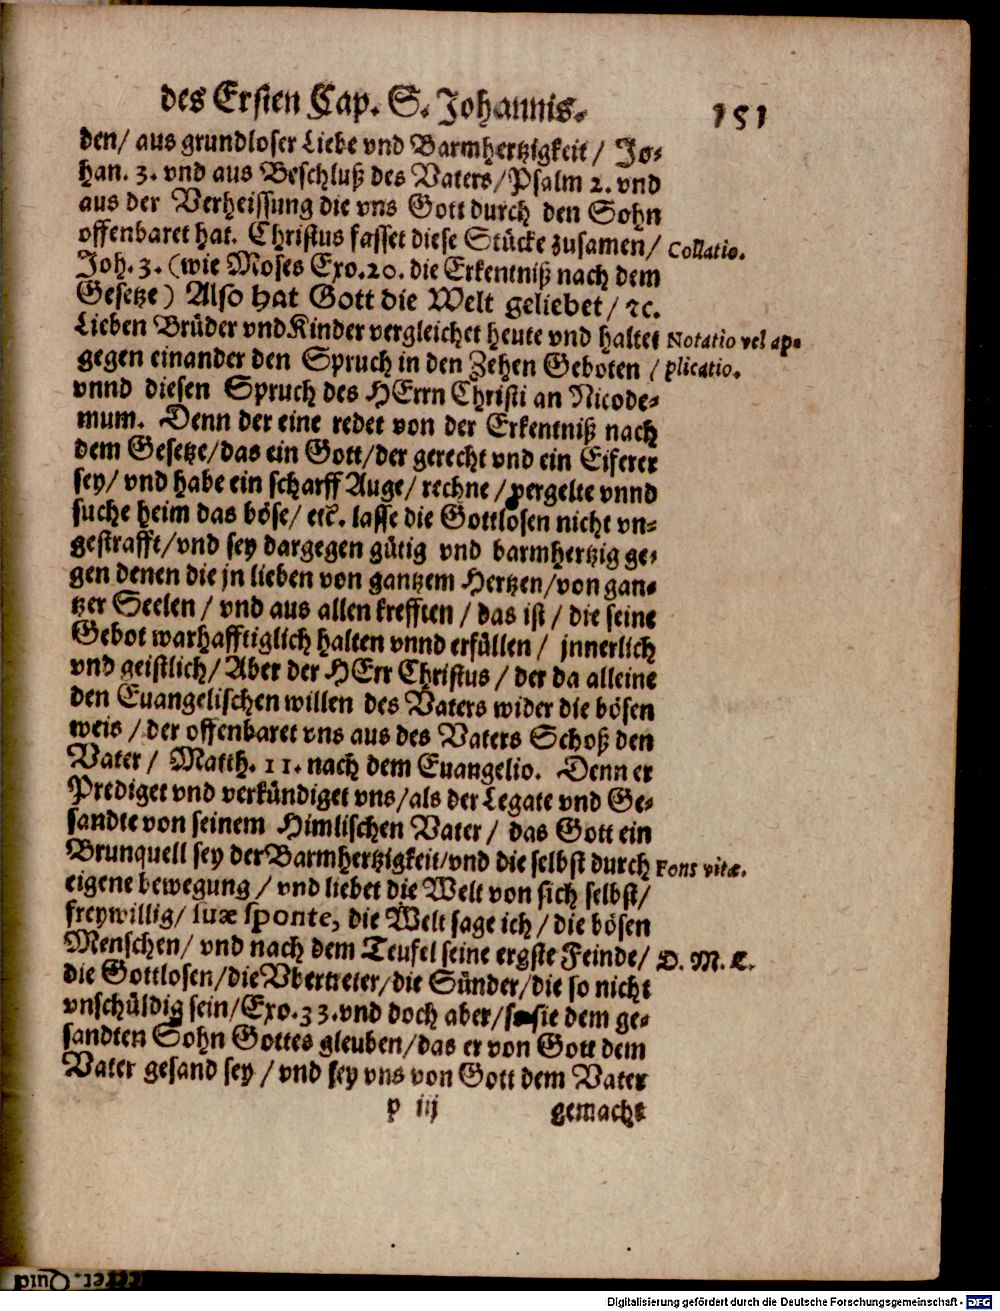 des Ersten Cap. S. Johannis.
151
den/ aus grundloser Liebe vnd Barmhertzigkeit/ Jo-
han. 3. vnd aus Beschluß des Vaters/ Psalm 2. vnd
aus der Verheissung die vns Gott durch den Sohn
offenbaret hat. Christus fasset diese Stücke zusamen/
Collatio.
Joh. 3. (wie Moses Exo. 20. die Erkentniß nach dem
Gesetze) Also hat Gott die Welt geliebet/ ꝛc.
Lieben Brüder vnd Kinder vergleichet heute vnd haltet
Notatio vel ap-
gegen einander den Spruch in den Zehen Geboten /
plicatio.
vnnd diesen Spruch des HErrn Christi an Nicode-
mum. Denn der eine redet von der Erkentniß nach
dem Gesetze/das ein Gott/der gerecht vnd ein Eiferer
sey/ vnd habe ein scharff Auge/ rechne / vergelte vnnd
suche heim das böse/ etc. lasse die Gottlosen nicht vn-
gestrafft/vnd sey dargegen gütig vnd barmhertzig ge-
gen denen die jn lieben von gantzem Hertzen/von gan-
tzer Seelen / vnd aus allen krefften / das ist / die seine
Gebot warhafftiglich halten vnnd erfüllen / jnnerlich
vnd geistlich/ Aber der HErr Christus / der da alleine
den Euangelischen willen des Vaters wider die bösen
weis / der offenbaret vns aus des Vaters Schoß den
Vater / Matth. 11. nach dem Euangelio. Denn er
Prediget vnd verkündiget vns/als der Legate vnd Ge-
sandte von seinem Himlischen Vater / das Gott ein
Brunquell sey der Barmhertzigkeit/vnd die selbst durch
Fons vitæ.
eigene bewegung / vnd liebet die Welt von sich selbst/
freywillig/ suæ sponte, die Welt sage ich / die bösen
Menschen/ vnd nach dem Teufel seine ergste Feinde/
D. M. L.
die Gottlosen/die Vbertreter/die Sünder/die so nicht
vnschüldig sein/Exo. 33. vnd doch aber/so sie dem ge-
sandten Sohn Gottes gleuben/das er von Gott dem
Vater gesand sey / vnd sey vns von Gott dem Vater
p iij
gemacht
Digitalisierung gefördert durch die Deutsche Forschungsgemeinschaft - DFG